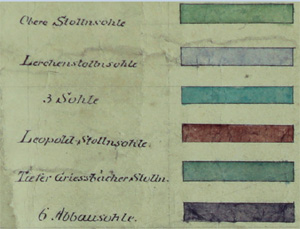 Obere Stollnsohle
Lerchenstollnsohle
3 Sohle
Leopold-Stollnsohle.
Tiefer Griessbacher Stolln.
6 Abbausohle.